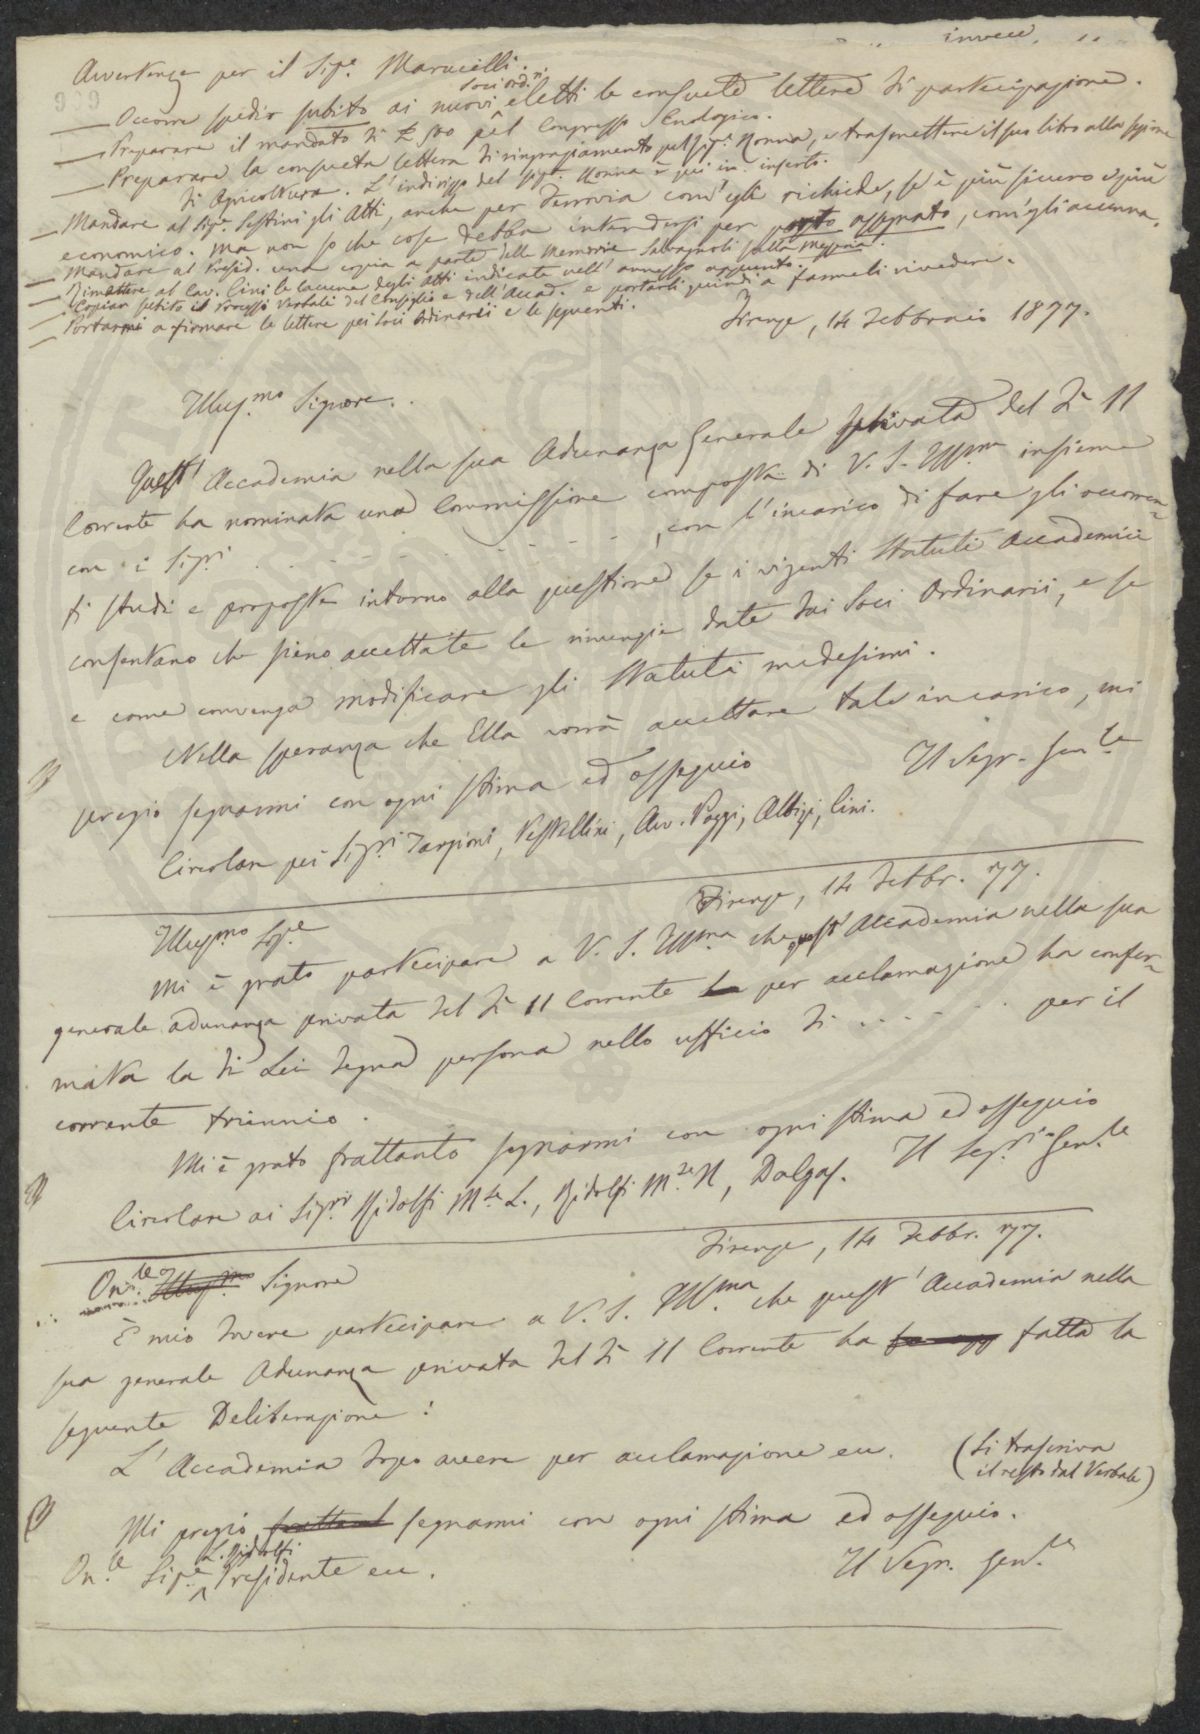 invece
Avvertenze per il Sigr. Marucelli.
— Occorre spedir subito ai nuovi Soci ord.ri eletti le consuete lettere di partecipazione.
— Preparare il mandato di £ 500 pel Congresso Enologico.
— Preparare la consueta lettera di ringraziamento pel Sigr. Nonna, e trasmettere il suo libro alla Sezione
di Agricoltura. L'indirizzo del Sigr. Nonna è qui in inserto.
— Mandare al Sigr. Sestini gli Atti, anche per Ferrovia com'egli richiede, se è più sicuro e più
economico. Ma non so che cosa debba intendersi per porto assegnato, com'gli accenna.
— Mandare al Presid. una copia a parte della Memoria Salvagnoli sulla
— Rimettere al Cav. Cini le lacune degli Atti indicate nell'annesso appunto.
— Copiar subito il Processo Verbale del Consiglio e dell'Accad. e portarli quindi a farmeli rivedere.
— Portarmi a firmare le lettere pei Soci Ordinarii e le seguenti.
Firenze, 14 Febbraio 1877.
Illus.mo Signore.
Quest'Accademia nella sua Adunanza Generale privata del dì 11
Corrente ha nominata una Commissione composta di V. S. Ill.ma insieme
con i Sig.ri . . . . . . . . . . , con l'incarico di fare gli occorren-
ti studi e proposte intorno alla questione se i vigenti Statuti Accademici
consentano che sieno accettate le rinunzie date dai Soci Ordinarii, e se
e come convenga modificare gli Statuti medesimi.
Nella speranza che Ella vorrà accettare tale incarico, mi
pregio segnarmi con ogni stima ed ossequio
Il Segr. Gen.le
Circolare pei Sig.ri Targioni, Pestellini, Avv. Poggi, Albizi, Cini.
Firenze, 14 Febbr. 77.
Illus.mo Sigr.e
Mi è grato partecipare a V. S. Ill.ma che quest'Accademia nella sua
generale adunanza privata del dì 11 Corrente ha per acclamazione ha confer-
mata la di Lei degna persona nello ufficio di . . . . . . per il
corrente triennio.
Mi è grato frattanto segnarmi con ogni stima ed ossequio
Il Seg.rio Gen.le
Circolare ai Sig.ri Ridolfi M.se L., Ridolfi M.se N, Dalgas.
Firenze, 14 Febbr. 77.
On.le Illus.mo Signore
È mio dovere partecipare a V. S. Ill.ma che quest'Accademia nella
sua generale Adunanza privata del dì 11 Corrente ha fatta la
seguente Deliberazione:
L'Accademia dopo avere per acclamazione ecc. (Si trascriva
il resto dal Verbale)
Mi pregio frattanto segnarmi con ogni stima ed ossequio.
Il Segr. Gen.le
On.le Sigr.e L. Ridolfi Presidente ecc.